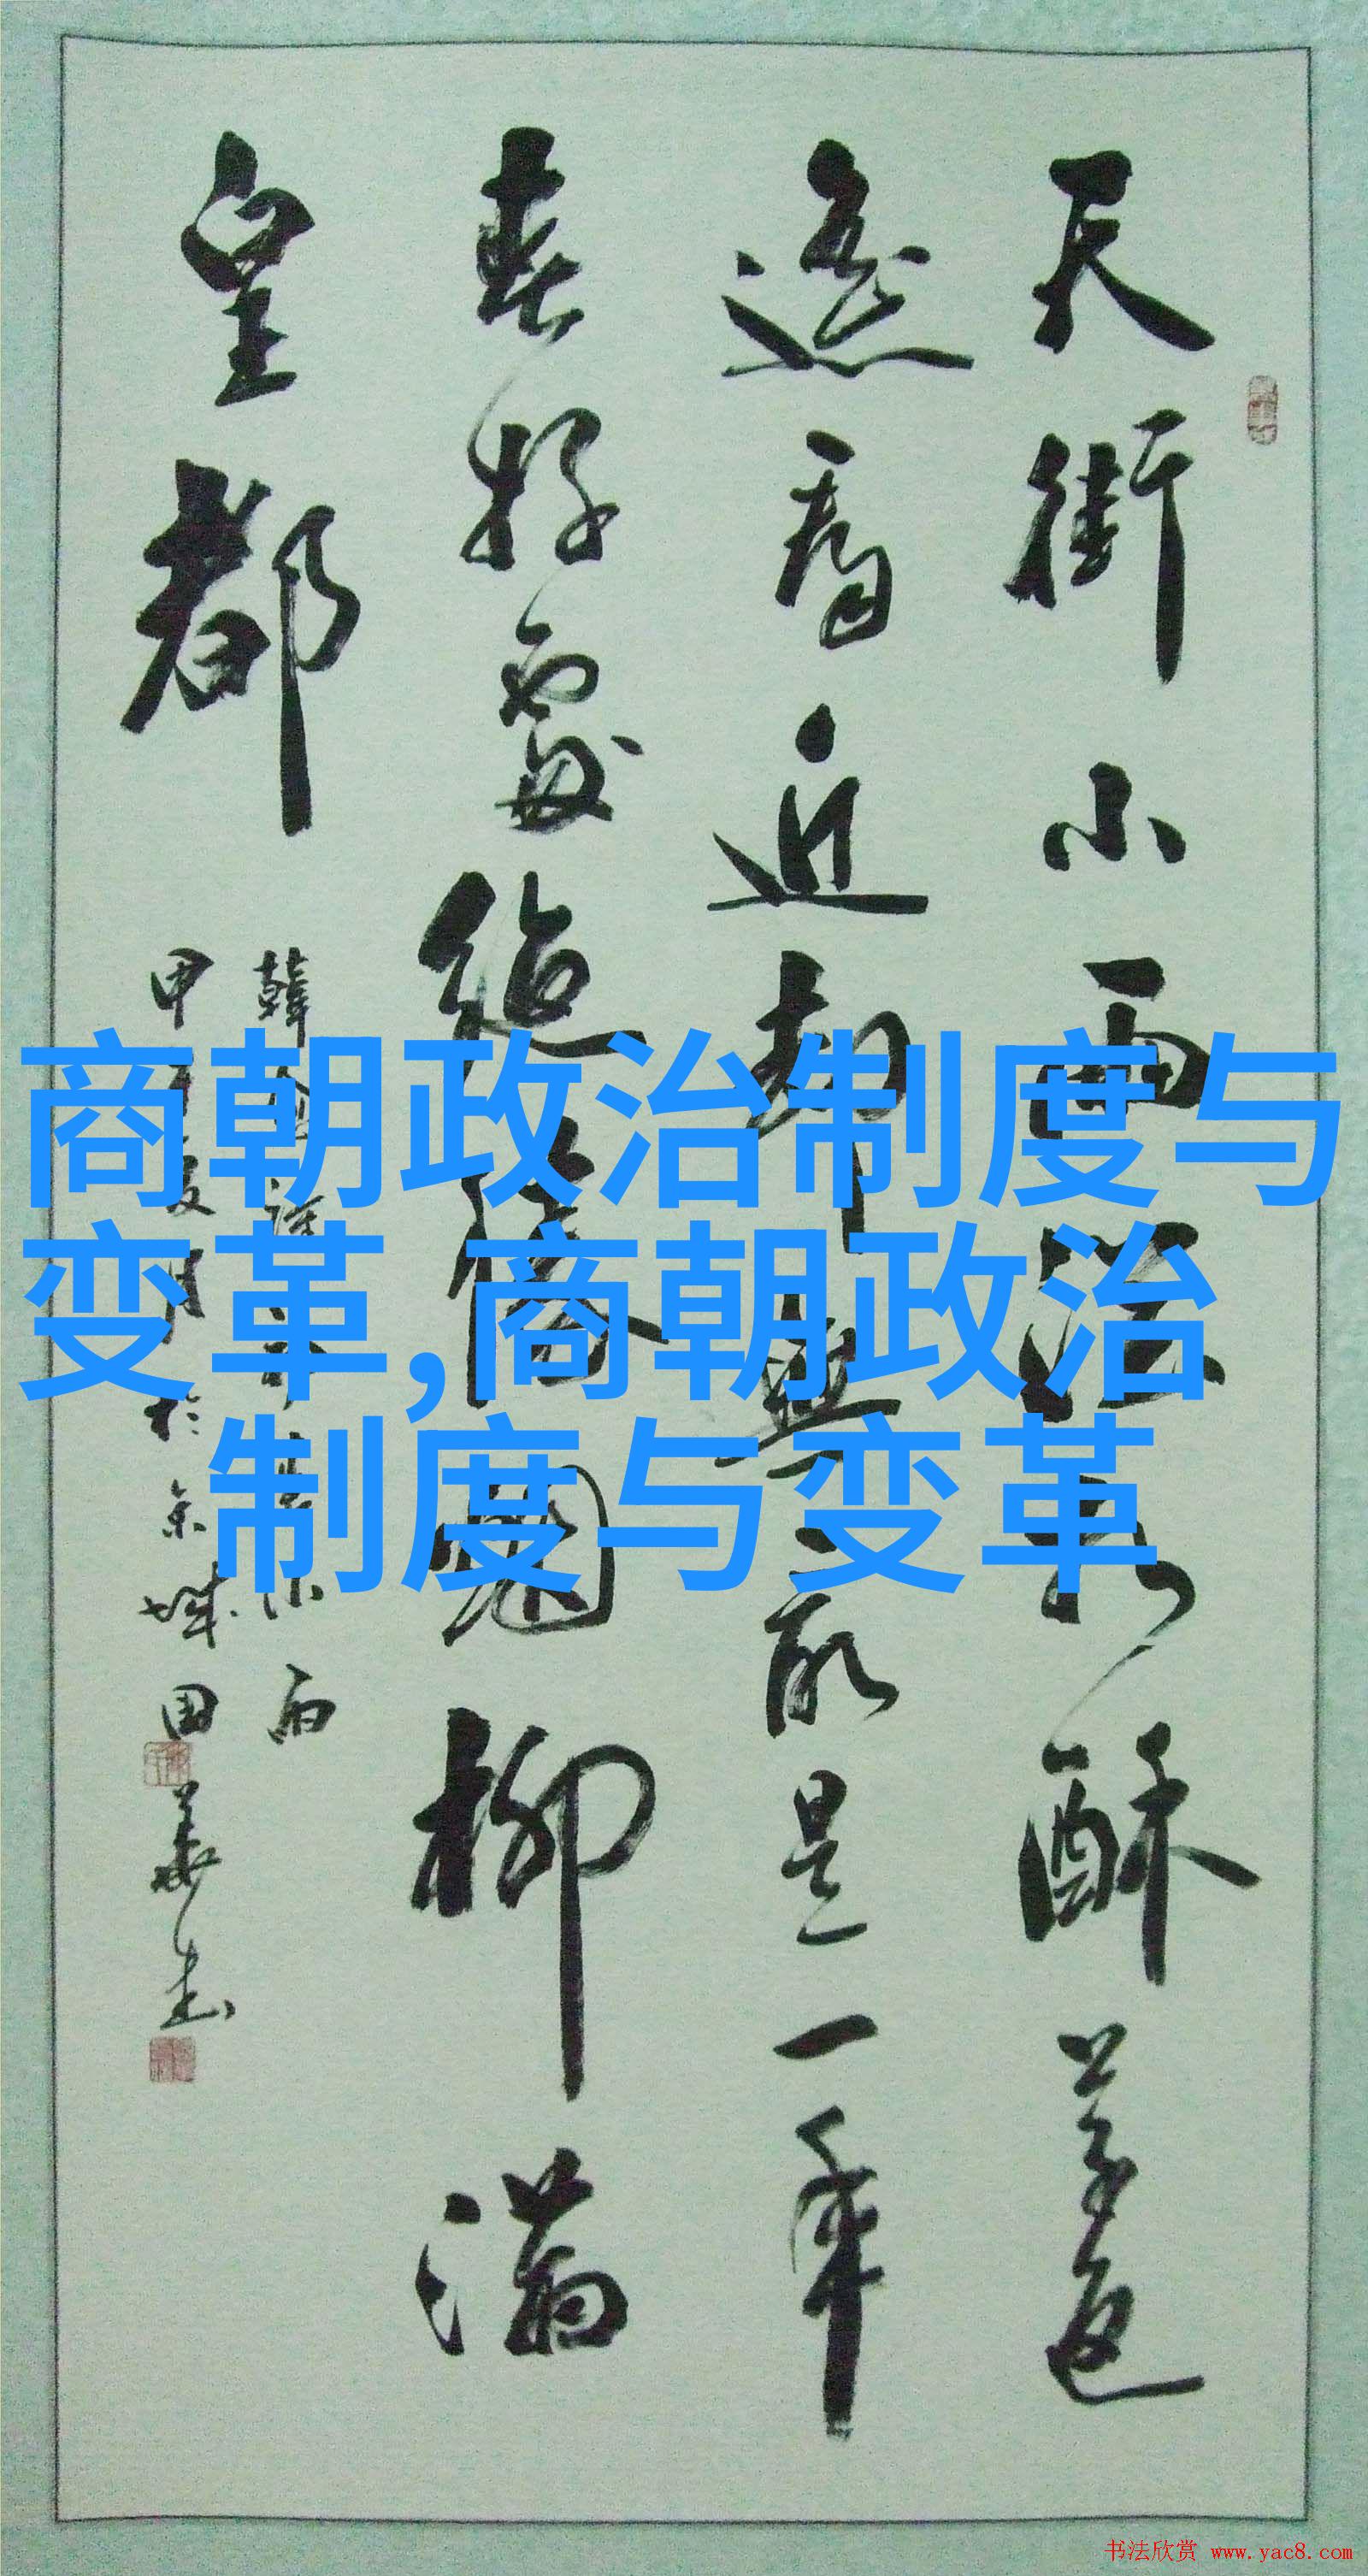 天街小雨润如酥草色
遥看近却无最是一年
春好处绝胜烟柳满
皇都
韩愈诗早春小雨
甲申夏月于京城国华书
商朝政治制度与
变革,商朝政治
制度与变革
书法欣赏 www.yac8.com